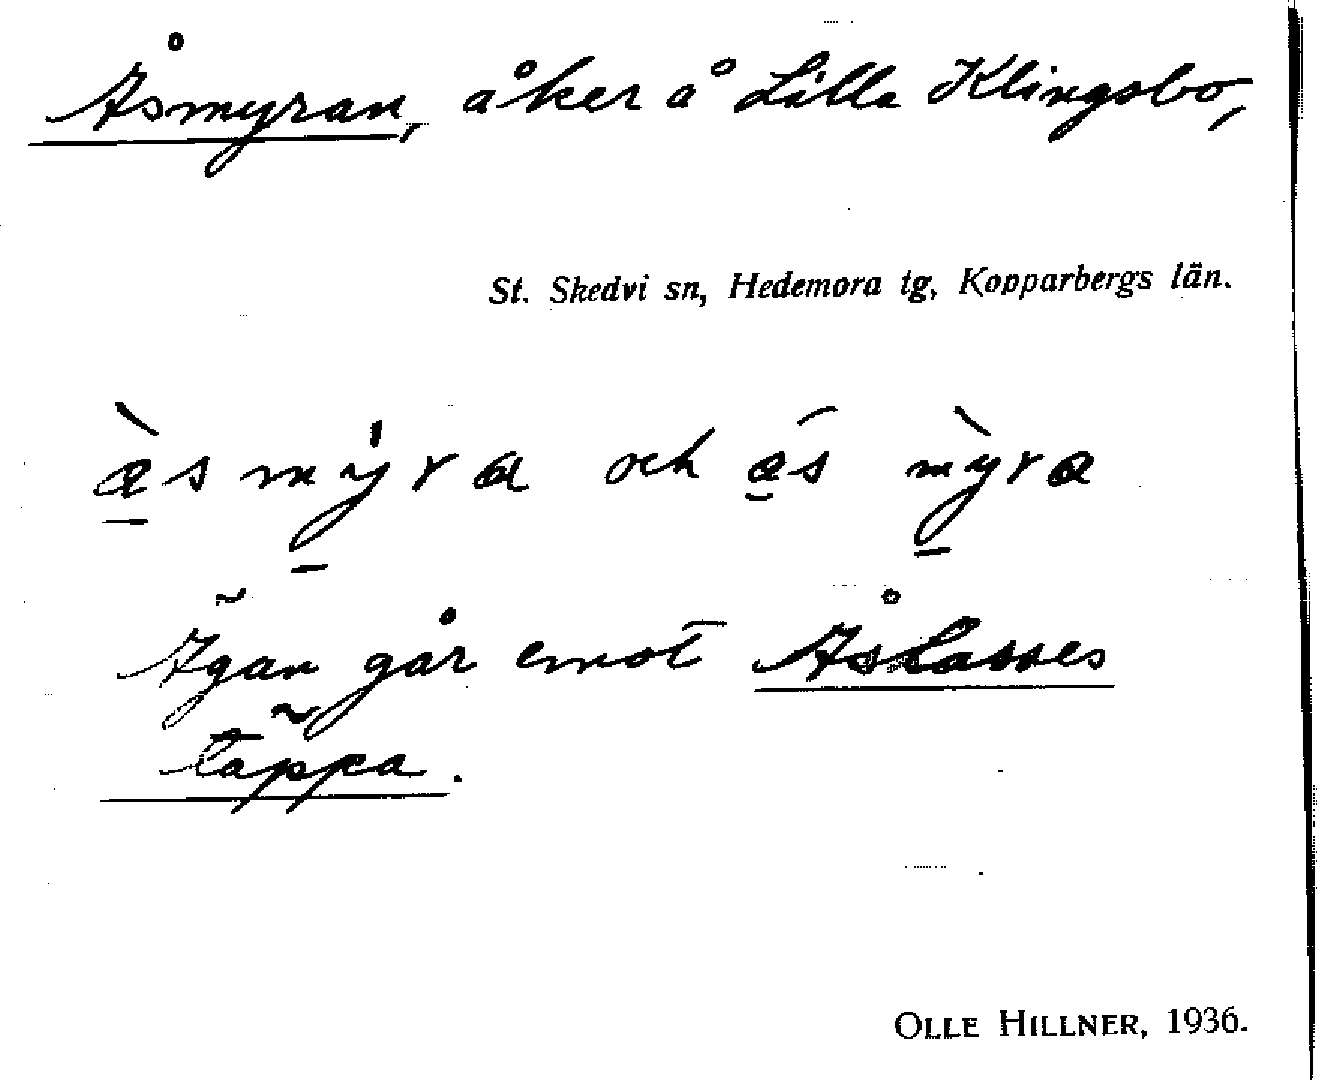 Åsmyran, åker å Lilla Klingsbo,
St. Skedvi sn, Hedemora tg, Kopparbergs län.
och
Ägan går emot Åslasses
täppa.
OLLE HILLNER, 1936.